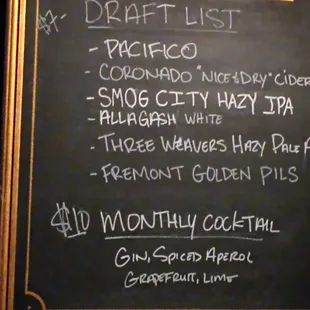 $7- DRAFT LIST
- PACIFICO
- CORONADO "NICE & DRY" CIDER
- SMOG CITY HAZY IPA
- ALLAGASH WHITE
- THREE WEAVERS HAZY PALE
- FREMONT GOLDEN PILS
$10 MONTHLY COCKTAIL
GIN, SPICED APEROL
GRAPEFRUIT, LIME